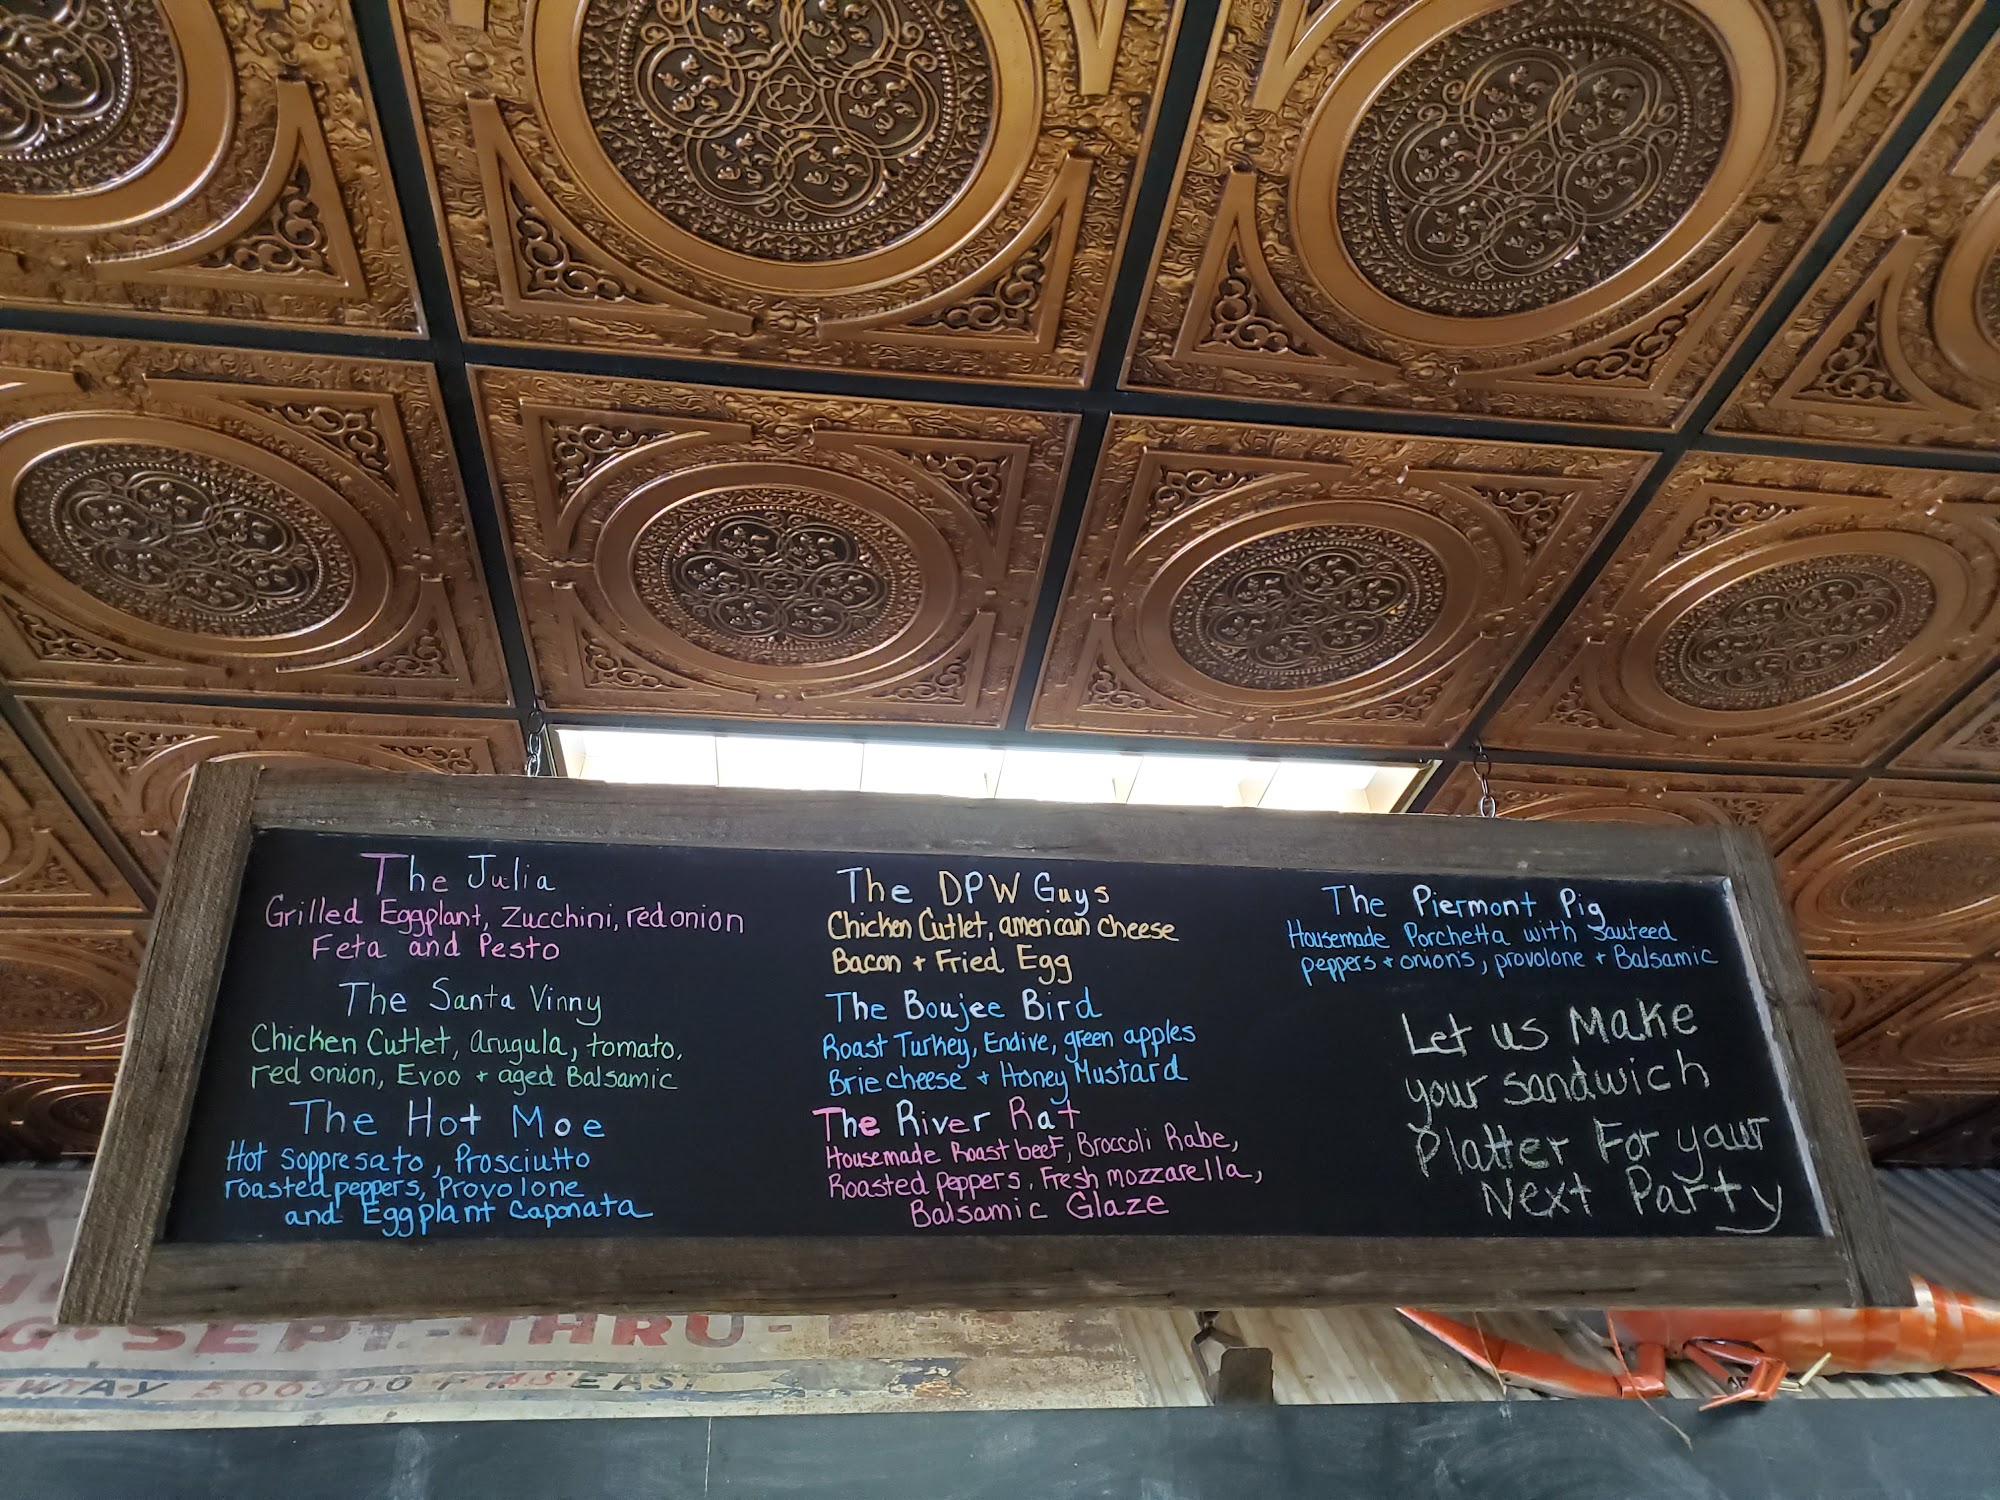 The Julia
Grilled Eggplant, Zucchini, red onion
Feta and Pesto
The Santa Vinny
Chicken Cutlet, arugula, tomato,
red onion, Evoo + aged Balsamic
The Hot Moe
Hot Soppresato, Prosciutto
roasted peppers, Provolone
and Eggplant Caponata
The DPW Guys
Chicken Cutlet, american cheese
Bacon + Fried Egg
The Boujee Bird
Roast Turkey, Endive, green apples
Brie cheese + Honey Mustard
The River Rat
Housemade Roast beef, Broccoli Rabe,
Roasted peppers, Fresh mozzarella,
Balsamic Glaze
The Piermont Pig
Housemade Porchetta with Sauteed
peppers + onions, provolone + Balsamic
Let us Make
your sandwich
Platter For your
Next Party
SEPT.-THRU-